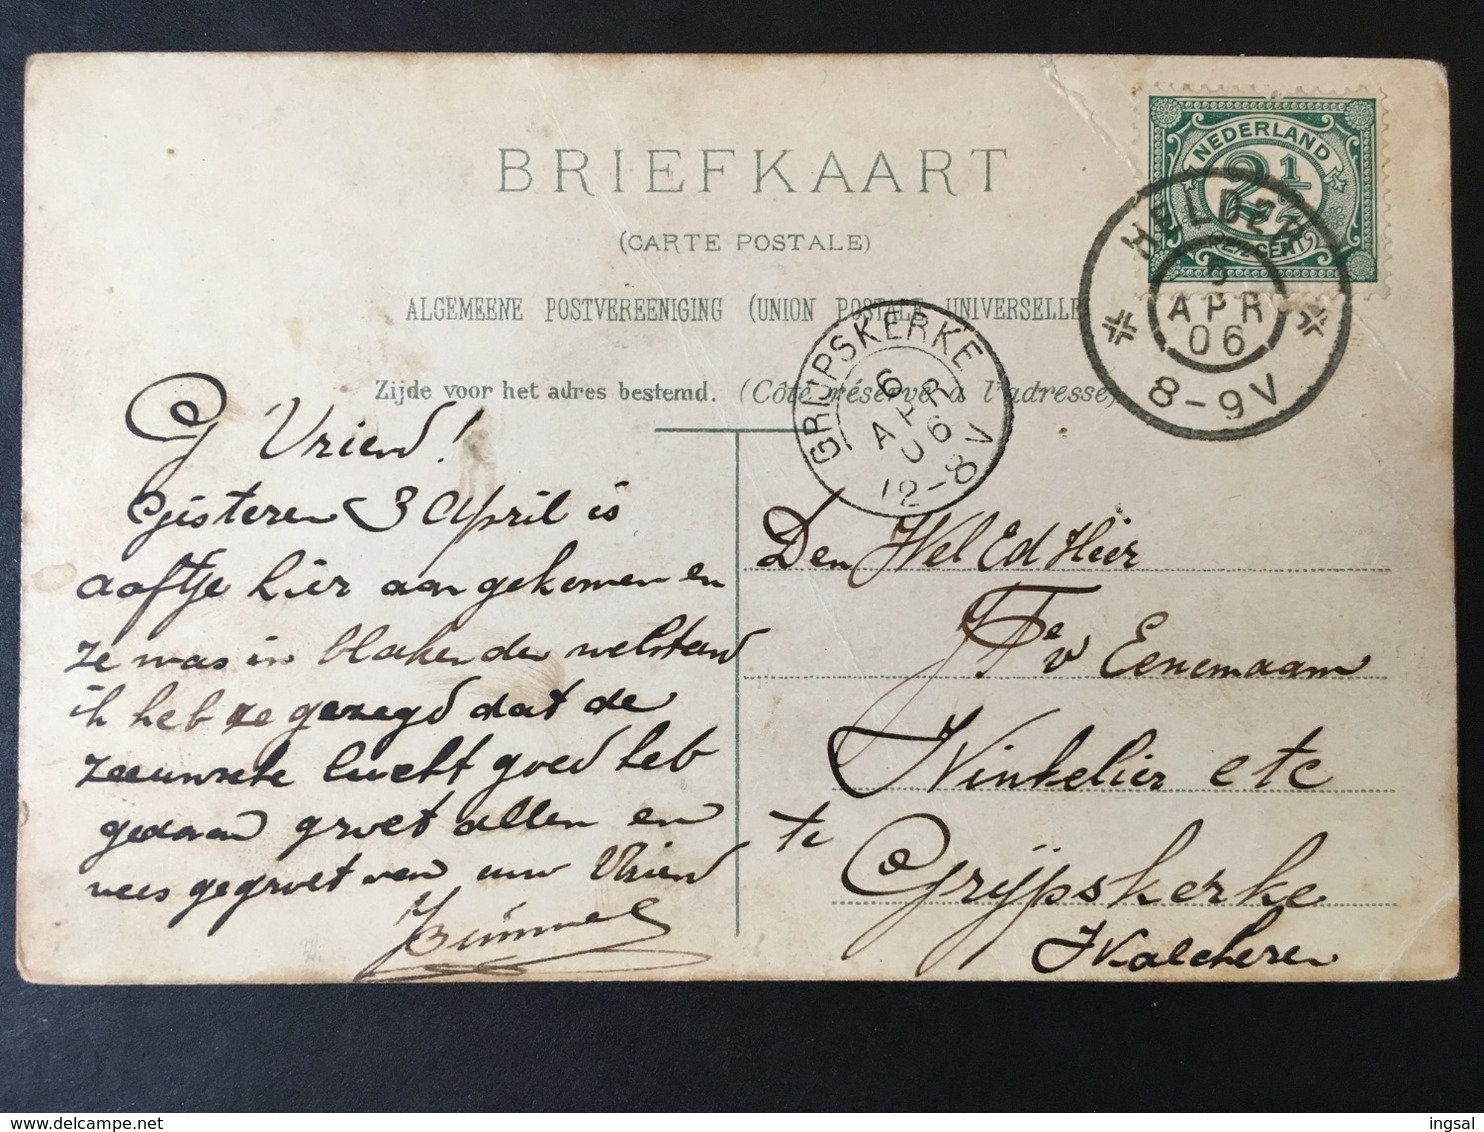 BRIEFKAART
(CARTE POSTALE)
ALGEMEENE POSTVEREENIGING (UNION POSTALE UNIVERSELLE
Zijde voor het adres bestemd. (Côté réservé à l'adresse)
NEDERLAND
2½
CENT
HELDER
5
APR
06
8-9V
GRIJPSKERKE
6
APR
06
12-8V
G Vriend!
Gisteren 3 April is
aaftje hier aangekomen en
ze was in blakende welstand
ik heb ze gezegd dat de
zeeuwsche lucht goed heb
gedaan groet allen en
wees gegroet van uw Vriend
Den Wel Ed Heer
v Eenennaam
Winkelier etc
te
Grijpskerke
Walcheren
delcampe.net
ingsal